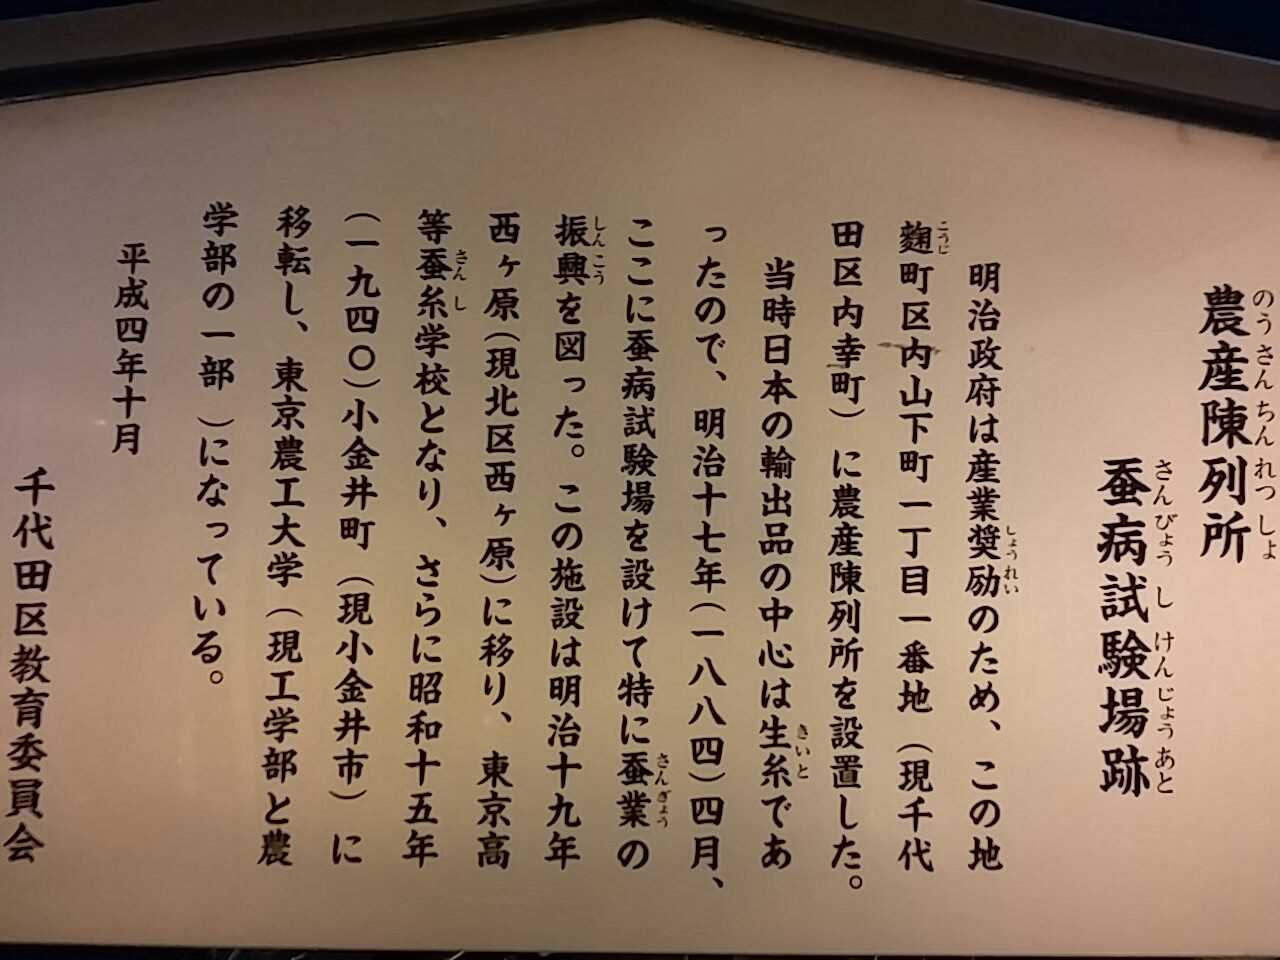 農産陳列所
のうさんちんれつしょ
蚕病試験場跡
さんびょうしけんじょうあと
明治政府は産業奨励のため、この地
しょうれい
麹町区内山下町一丁目一番地（現千代
こうじ
田区内幸町）に農産陳列所を設置した。
当時日本の輸出品の中心は生糸であ
きいと
ったので、明治十七年（一八八四）四月、
ここに蚕病試験場を設けて特に蚕業の
さんぎょう
振興を図った。この施設は明治十九年
しんこう
西ヶ原（現北区西ヶ原）に移り、東京高
等蚕糸学校となり、さらに昭和十五年
さんし
（一九四〇）小金井町（現小金井市）に
移転し、東京農工大学（現工学部と農
学部の一部）になっている。
平成四年十月
千代田区教育委員会